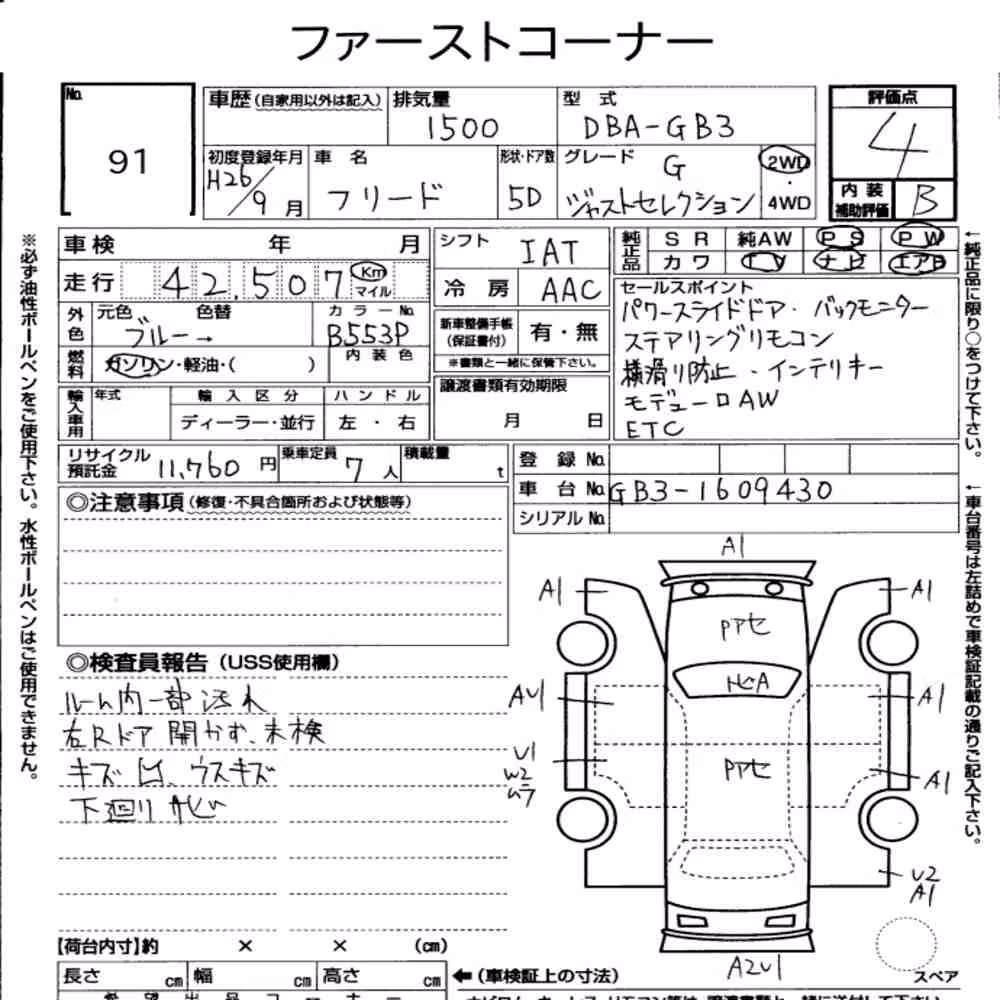 ファーストコーナー
No.
91
車歴 (自家用以外は記入) 排気量 1500 型式 DBA-GB3
評価点 4
初度登録年月 H26/9月 車名 フリード 形状・ドア数 5D グレード G ジャストセレクション 2WD・4WD
内装補助評価 B
※必ず油性ボールペンをご使用下さい。水性ボールペンはご使用できません。
車検 年 月
走行 42,507 Km マイル
外色 元色 ブルー→ 色替 カラーNo. B553P
燃料 ガソリン・軽油・( ) 内装色
輸入車用 年式 輸入区分 ディーラー・並行 ハンドル 左・右
シフト IAT
冷房 AAC
新車整備手帳 (保証書付) 有・無
※書類と一緒に保管下さい。
譲渡書類有効期限
月 日
純正品 SR 純AW PS PW
カワ TV ナビ エアB
セールスポイント
パワースライドドア・バックモニター
ステアリングリモコン
横滑り防止・インテリキー
モデューロAW
ETC
←純正品に限り○をつけて下さい。
リサイクル預託金 11,760円 乗車定員 7人 積載量 t
登録No.
車台No. GB3-1609430
シリアルNo.
←車台番号は左詰めで車検証記載の通りご記入下さい。
◎注意事項 (修復・不具合箇所および状態等)
◎検査員報告 (USS使用欄)
ルーム内一部汚れ
右Rドア開かず、未検
キズ凹、ウスキズ
下廻りサビ
A1
A1
A1
Pアセ
ヒA
AU1
A1
U1
W2
ムラ
Pアセ
A1
U2
A1
A2U1
スペア
【荷台内寸】約 × × (cm)
長さ cm 幅 cm 高さ cm
←(車検証上の寸法)